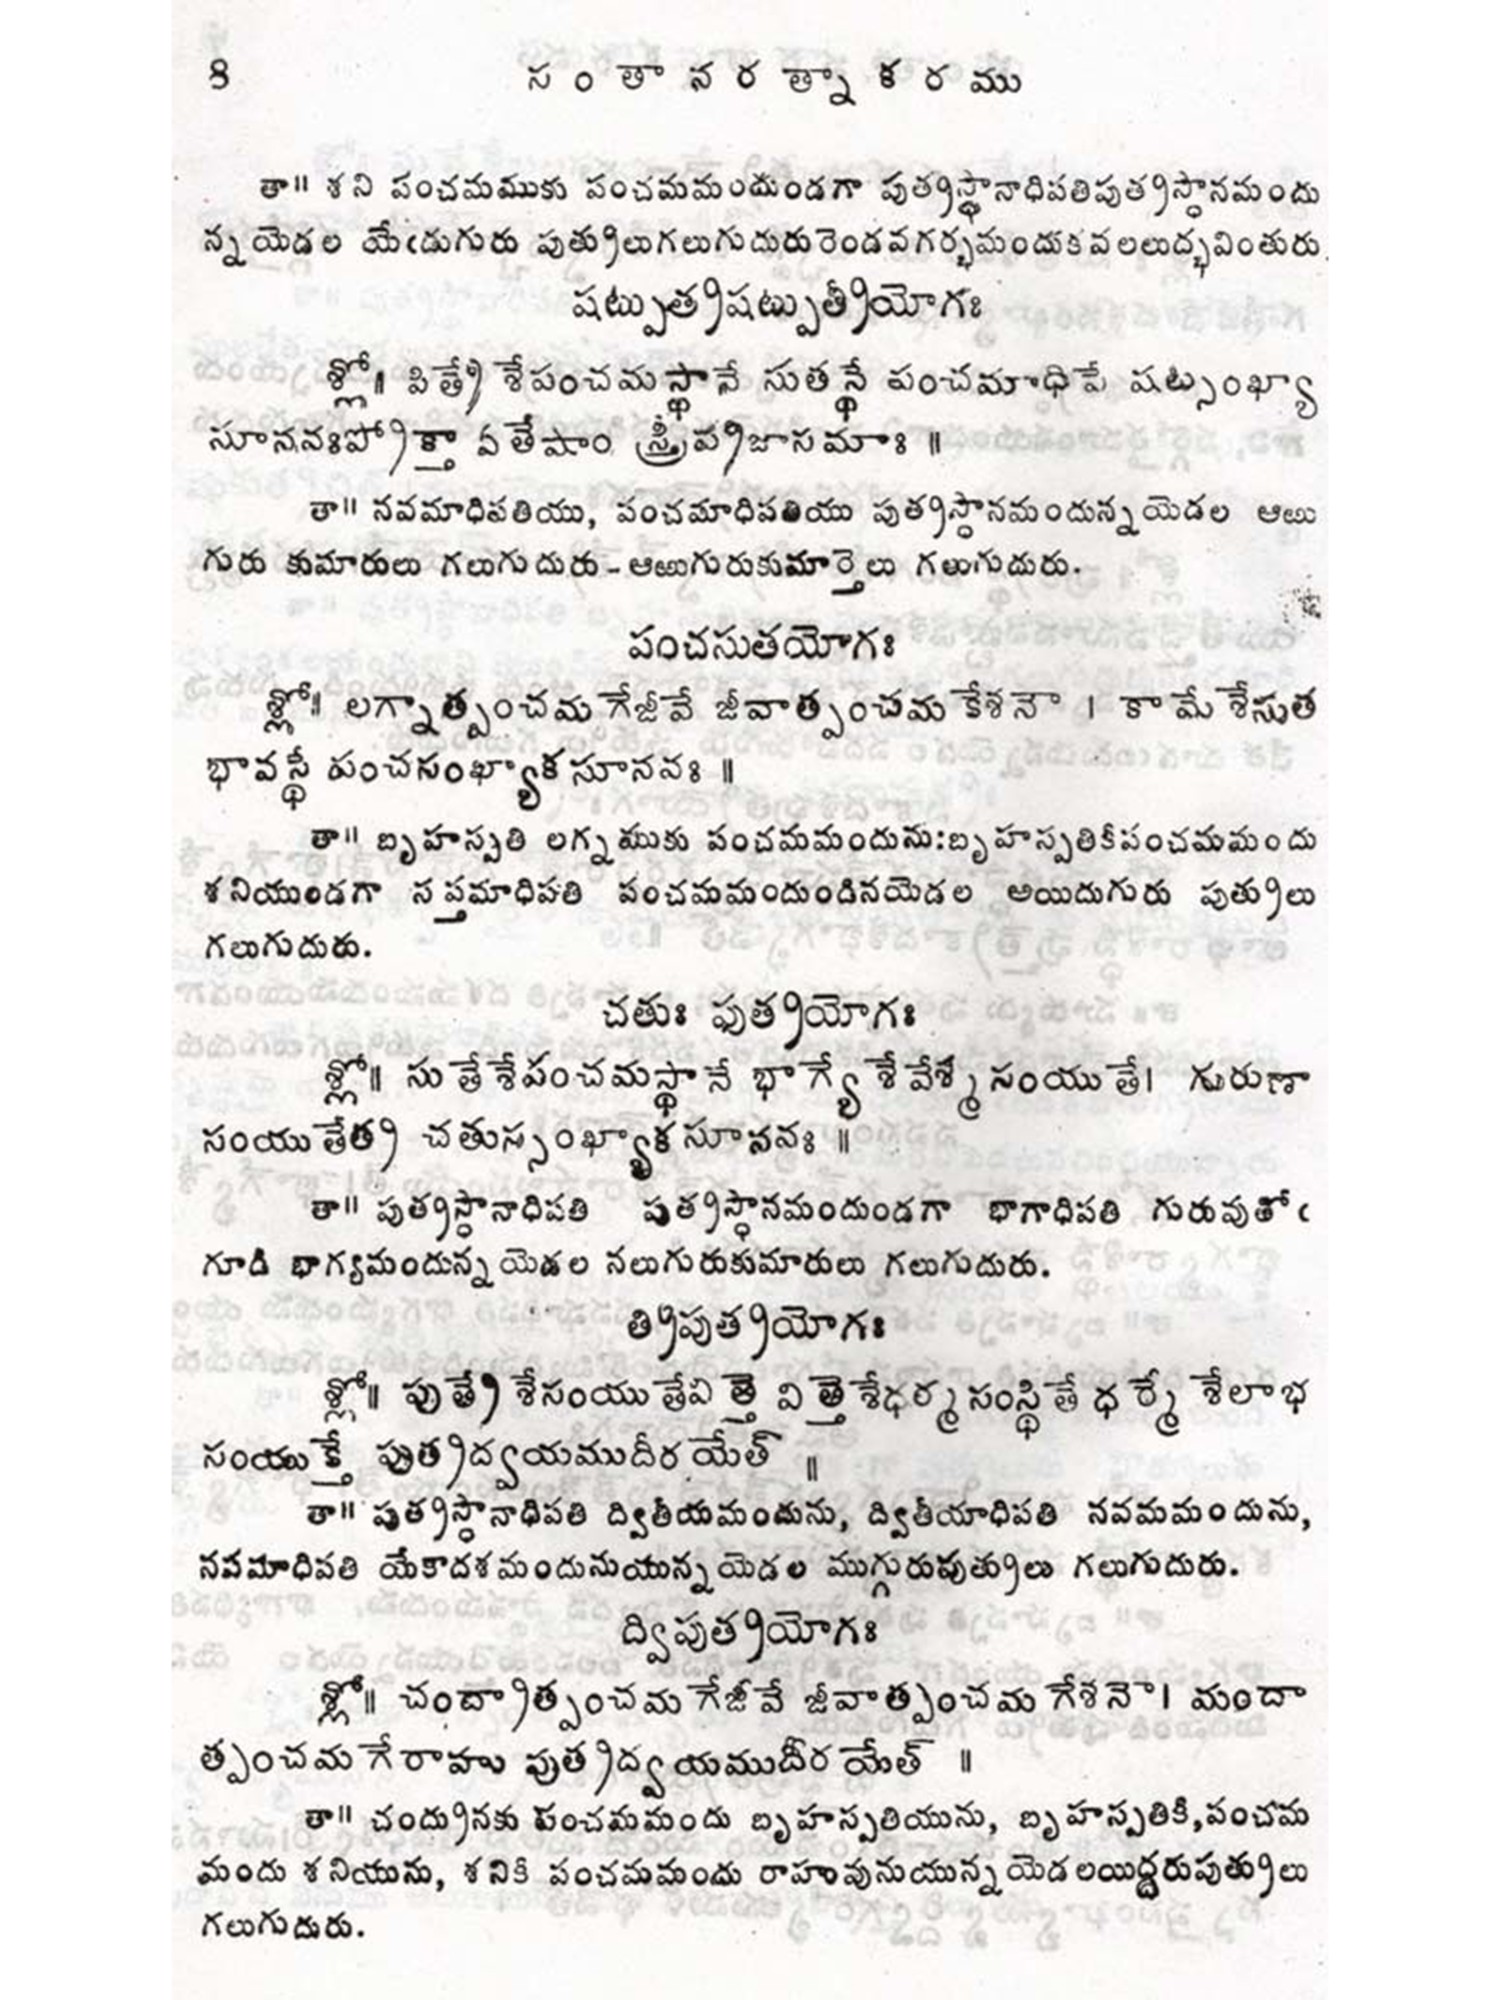 8 సంతానరత్నాకరము
తా॥ శని పంచమముకు పంచమమందుండగా పుత్రస్థానాధిపతిపుత్రస్థానమందు
న్నయెడల యేఁడుగురు పుత్రులుగలుగుదురురెండవగర్భమందుకవలలుద్భవింతురు.
షట్పుత్రషట్పుత్రీయోగః
శ్లో॥ పిత్రేశేపంచమస్థానే సుతస్థే పంచమాధిపే షట్సంఖ్యా
సూనవఃప్రోక్తా ఏతేషాం స్త్రీప్రజాసమాః ॥
తా॥ నవమాధిపతియు, పంచమాధిపతియు పుత్రస్థానమందున్నయెడల ఆఱు
గురు కుమారులు గలుగుదురు - ఆఱుగురుకుమార్తెలు గలుగుదురు.
పంచసుతయోగః
శ్లో॥ లగ్నాత్పంచమగేజీవే జీవాత్పంచమకేశనౌ । కామేశేసుత
భావస్థే పంచసంఖ్యాకసూనవః ॥
తా॥ బృహస్పతి లగ్నముకు పంచమమందును:బృహస్పతికీపంచమమందు
శనియుండగా సప్తమాధిపతి పంచమమందుండినయెడల అయిదుగురు పుత్రులు
గలుగుదురు.
చతుః పుత్రయోగః
శ్లో॥ సుతేశేపంచమస్థానే భాగ్యేశేవేశ్మసంయుతే। గురుణా
సంయుతేత్ర చతుస్సంఖ్యాకసూనవః ॥
తా॥ పుత్రస్థానాధిపతి పుత్రస్థానమందుండగా భాగాధిపతి గురువుతోఁ
గూడి భాగ్యమందున్నయెడల నలుగురుకుమారులు గలుగుదురు.
త్రిపుత్రయోగః
శ్లో॥ పుత్రేశేసంయుతేవిత్తె విత్తెశేధర్మసంస్థితే ధర్మేశేలాభ
సంయుక్తే పుత్రద్వయముదీరయేత్ ॥
తా॥ పుత్రస్థానాధిపతి ద్వితీయమందును, ద్వితీయాధిపతి నవమమందును,
నవమాధిపతి యేకాదశమందునుయున్నయెడల ముగ్గురుపుత్రులు గలుగుదురు.
ద్విపుత్రయోగః
శ్లో॥ చంద్రాత్పంచమగేజీవే జీవాత్పంచమగేశనౌ। మందా
త్పంచమగేరాహు పుత్రద్వయముదీరయేత్ ॥
తా॥ చంద్రునకు పంచమమందు బృహస్పతియును, బృహస్పతికి,పంచమ
మందు శనియును, శనికీ పంచమమందు రాహువునుయున్నయెడలయిద్దరుపుత్రులు
గలుగుదురు.